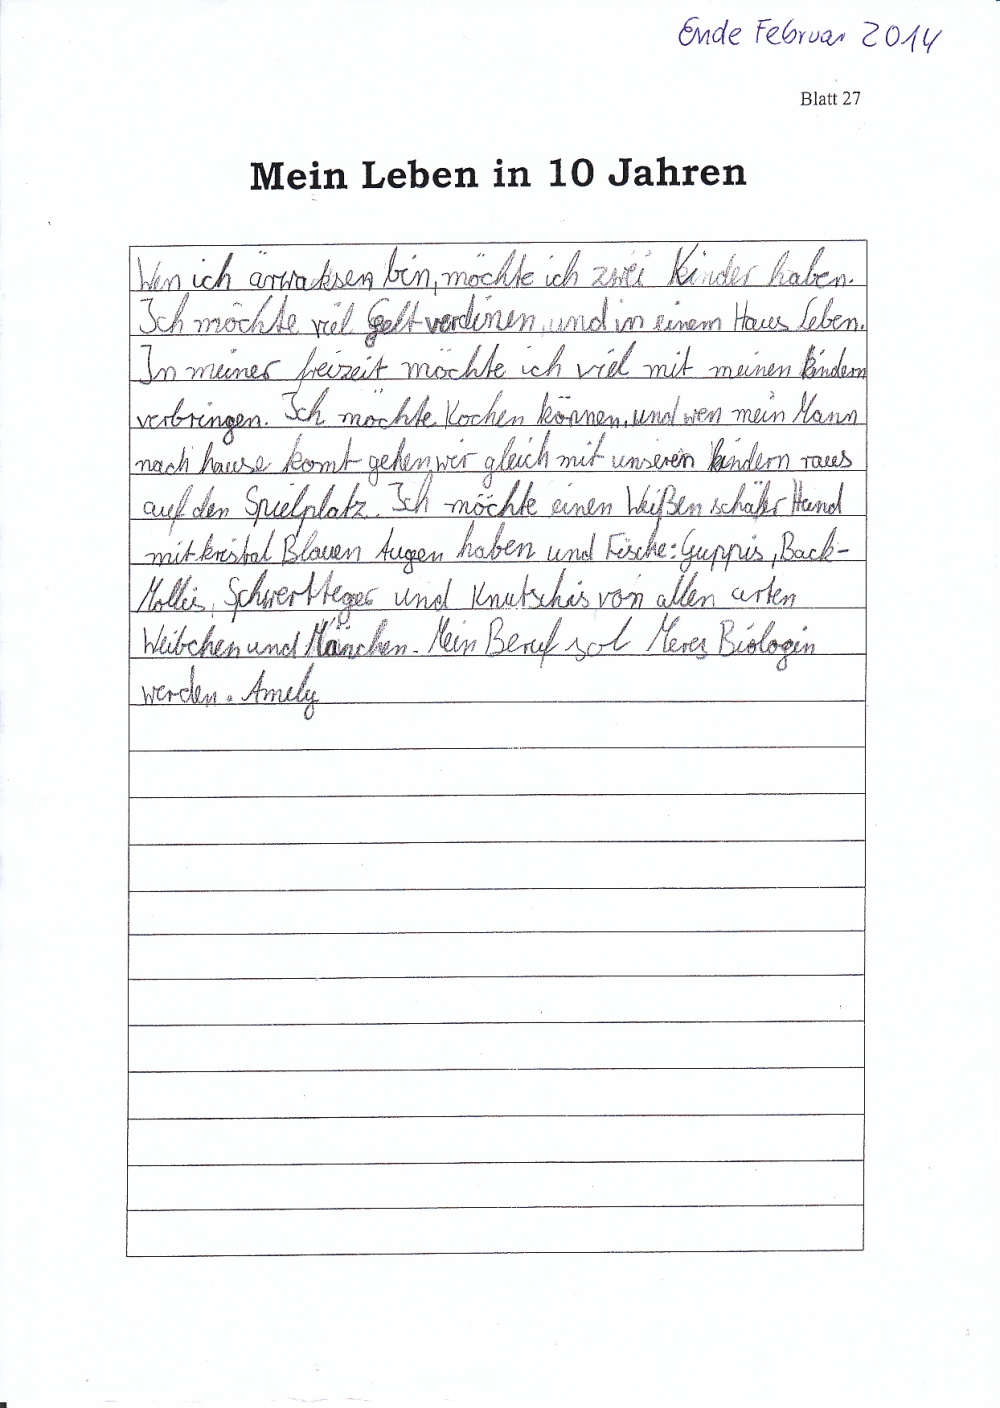 Ende Februar 2014
Blatt 27
Mein Leben in 10 Jahren
Wen ich ärwaksen bin, möchte ich zwei Kinder haben.
Ich möchte viel Gelt verdinen, und in einem Haus Leben.
In meiner freizeit möchte ich viel mit meinen kindern
verbringen. Ich möchte Kochen können, und wen mein Mann
nach hause komt gehen wir gleich mit unseren kindern raus
auf den Spielplatz. Ich möchte einen Weißen schäfer Hund
mit kristal Blauen Augen haben und Fische: Guppis, Back-
Mollis, Schwertteger und Knutschis von allen arten
Weibchen und Mänchen. Mein Beruf sol Meres Biologin
werden. Amely